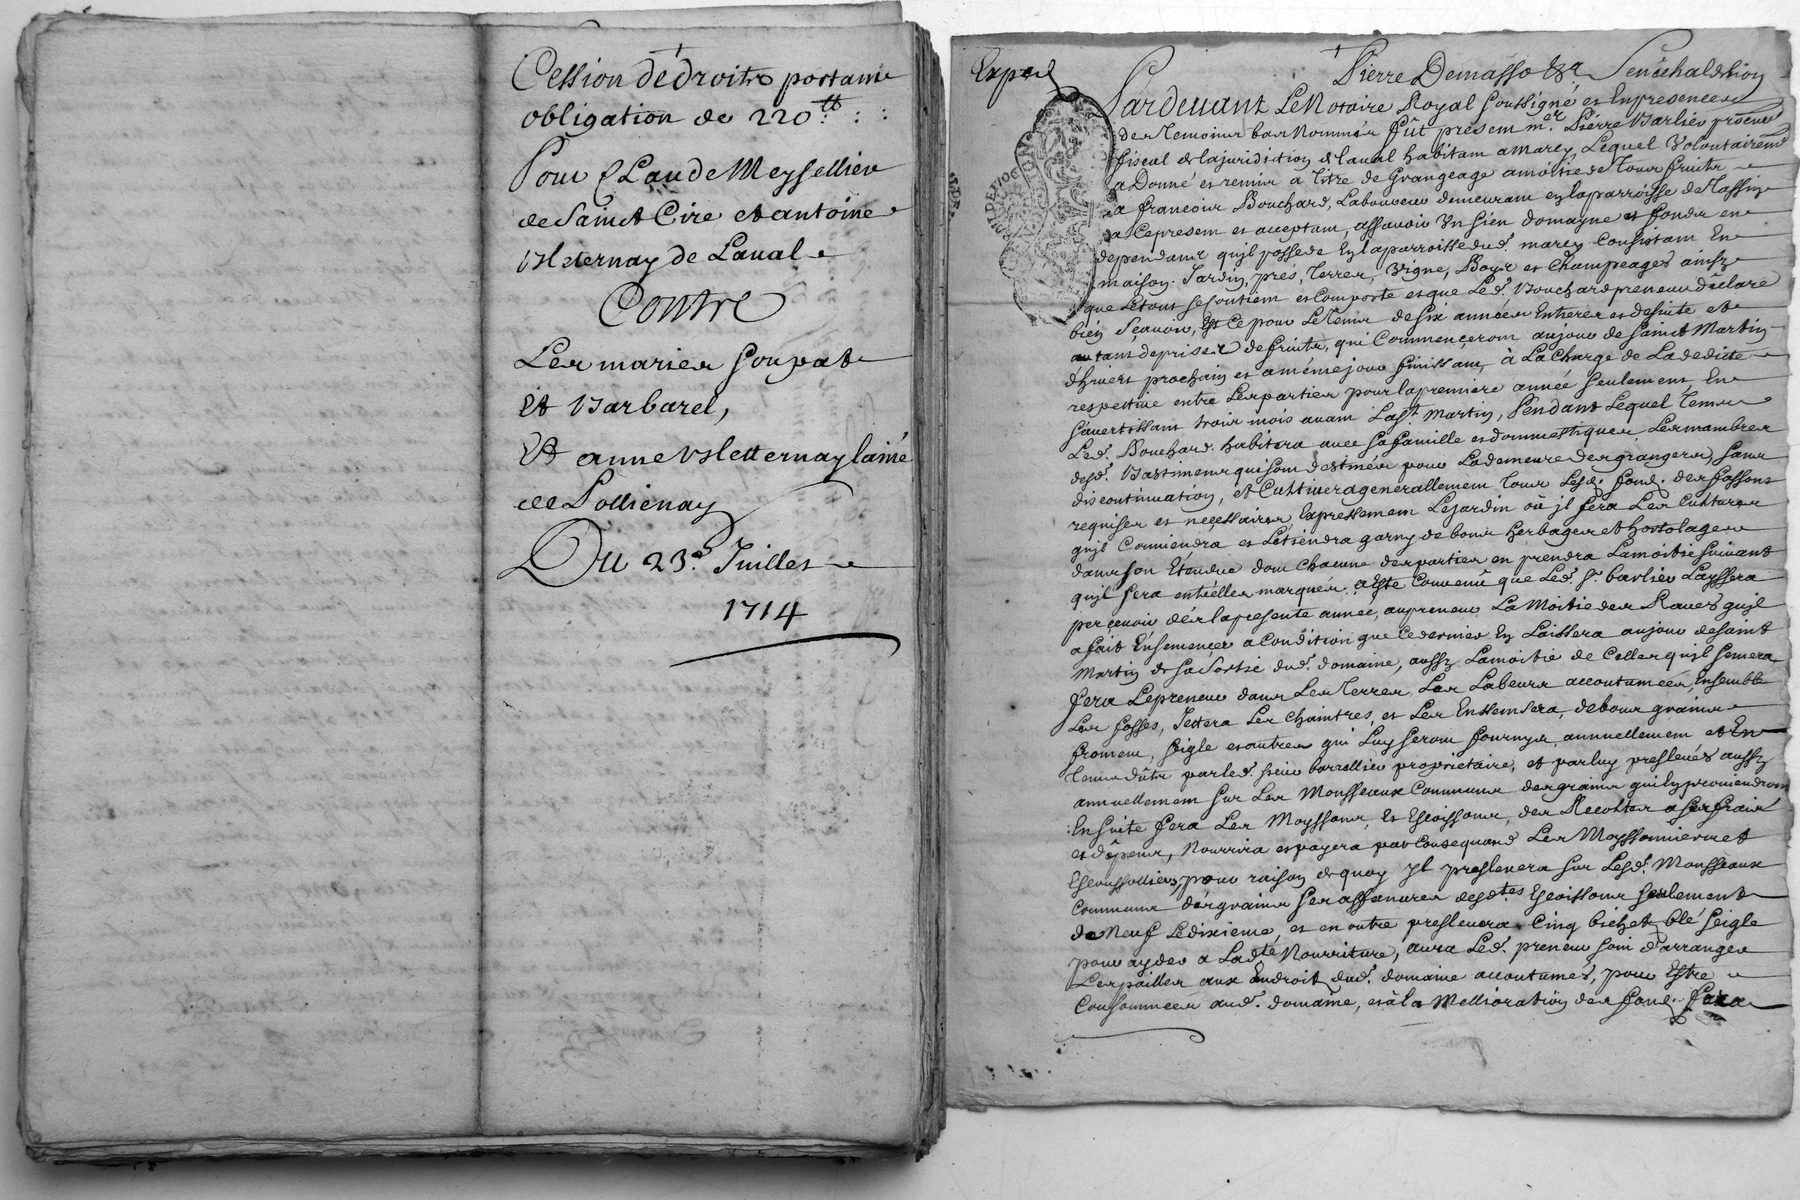 Cession de droits portant
obligation de 220.tt : :
Pour Claude Meysellier
de Sainct Cire et antoine
Vleternay de Laual
Contre
Les maries Goupat
Et Barbaret,
Et anne Vletternay lainé
de Pollienay
Du 23.e Juillet
1714
Exped
Pierre Demasso &c. Senechal de Lion
Pardeuant Le Notaire Royal Soussigné et En presence
des Temoins bas Nommés fût present m.er Pierre Barlieu procur
fiscal de la juridition de laual habitant a marcy, Lequel Volontairemt
a Donné et remis a titre de Grangeage a moitié de Tous fruits
a francois Bouchard, Laboureur demeurant en la parroisse de
a Ce present et acceptant, assauoir Un sien domayne et fonds en
dependant quil possede En la parroisse dud. marcy Consistant En
maison. Jardin, prés, Terres, Vigne, Boys et Champeages ainsy
que Le tout se Contient et Comporte et que Led. Bouchard preneur declare
bien Scauoir, Et Ce pour Le Tems de six années Entieres et de suite et
autant de prises de fruits, qui Commenceront au jour de Sainct Martin
dhiuert prochain et a méme jour finissant, à La Charge de La dedicte
respectiue entre Les parties pour la premiere année seulement, En
sauertissant trois mois auant La St. Martin, Pendant Lequel Tems
Led. Bouchard habitera auec sa famille et dommestiques Les mambres
desd. Bastimens qui sont destinés pour La demeure des grangers, sans
discontinuation, et Cultiuera generallement Tous Lesd. fonds des fassons
requises et necessaires, Expressement Le jardin où jl fera Les Cultures
quil Conuiendra et Le tiendra garny de bons herbages et hortolages
dans son Etendue dont Chacune des parties en prendra La moitié suiuant
quil sera entr'elles marqués. a Esté Conuenû que Led. Sr. barlieu Layssera
perceuoir dés la presente annee, au preneur La Moitie des Raues quil
a fait Ensemencer a Condition que Ce dernier En Laissera au jour de saint
Martin de sa Sortie dud. domaine, aussy La moitié de Celles quil semera
fera Le preneur dans Les Terres Les Labeurs accoutumées, Ensemble
Les fosses, Jettera Les Chaintres, et Les Ensemsera, de bons grains
froment, seigle et autres qui Luy seront fournys annuellement et En
Tems dût par led. sieur barrallieu proprietaire, et par luy presleués aussy
annuellement sur Les Monsseaux Communs des grains qui En prouiendront
Ensuite fera Les Moyssons, Et Escoissons, des Recoltes a ses frais
et dépens, Nourrira et payera par Consequand Les Moyssonnieurs et
Escoussolliers, pour raison de quoy jl presleuera sur Lesd. Monsseaux
Communs des grains ses affanures desd.tes Escoissons seulement
de Neuf Le dixieme, et en outre presleuera Cinq bichet blé seigle
pour ayder a Ladte Nourriture, aura Led. preneur soin d'arranger
Les pailles aux Endroit dud. domaine accoutumés, pour Estre
Consommées aud. domaine, et à la Mellioration des fonds. fera